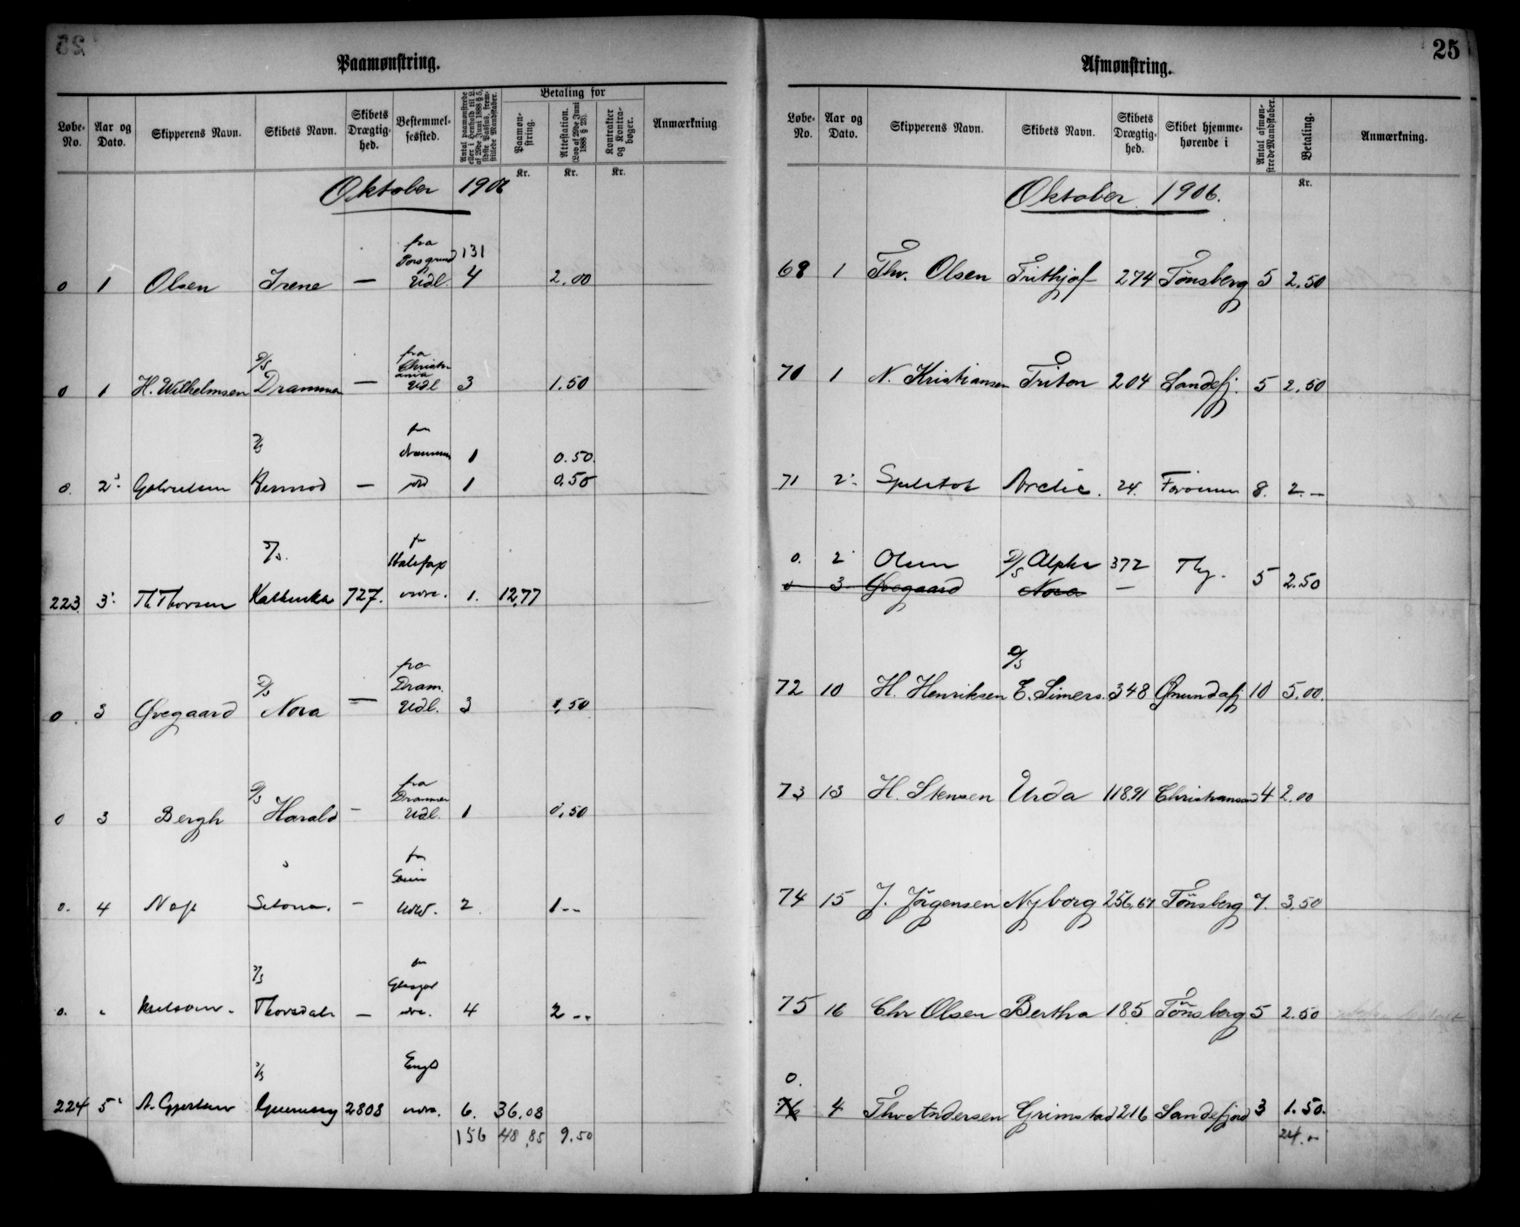 25
Paamønstring.
Løbe-No.	Aar og Dato.	Skipperens Navn.	Skibets Navn.	Skibets Drægtighed.	Bestemmelsessted.	Antal paamønstrede eller i Henhold til L. af 29de Juni 1888 § 5, sidste Passus, fremstillede Mandskaber.	Betaling for	Paamønstring.	Attestation. (Lov af 29de Juni 1888 § 25).	Kontrakter og Kontrabøger.	Anmærkning
Kr.	Kr.	Kr.
Oktober 1906
fra Porsgrund	131
0	1	Olsen	Irene	—	Udl.	4	2.00
D/S	fra Christiania
0	1	H. Wilhelmsen	Drammen	—	Udl	3	1.50
fra Drammen	1	0.50.
0.	2	—	1	0.50
S/S.	Halifax
223	3	Th Thorsen	727.	1.	12,77
D/S	fra Dram.
0.	3	Øvegaard	Nora	—	Udl.	3	1,50
D/S	fra Drammen
0	3	Bergh	Harald	—	Udl.	1	0,50
fra
0.	4	—	2.	1--
S/S
0.	"	Thorsdal	—	4	2--
S/S	Engl
224	5	Guernsey	2808	6.	36,08
156	48,85	9.50
25
Afmønstring.
Løbe-No.	Aar og Dato.	Skipperens Navn.	Skibets Navn.	Skibets Drægtighed.	Skibet hjemmehørende i	Antal afmønstrede Mandskaber.	Betaling.	Anmærkning.
Kr.
Oktober 1906.
68	1	Thv. Olsen	Frithjof	274	Tønsberg	5	2,50
70	1	N. Kristiansen	Triton	204	Sandefj.	5	2,50
71	2	Arctic.	24.	8.	2.—
0.	2	Olsen	D/S Alpha	372	5	2.50
0	3	Øvegaard	Nora	—
D/S
72	10	H. Henriksen	E. Simers.	348	10	5.00.
73	13	H. Stensen	Urda	118,91	Christiansand	4	2.00
74	15	J. Jörgensen	Nyborg	256,67	Tønsberg	7.	3,50
75	16	Chr Olsen	Bertha	185	Tønsberg	5	2.50
0.
76	4	Thv Andersen	Grimstad	216	Sandefjord	3	1.50.
24.-